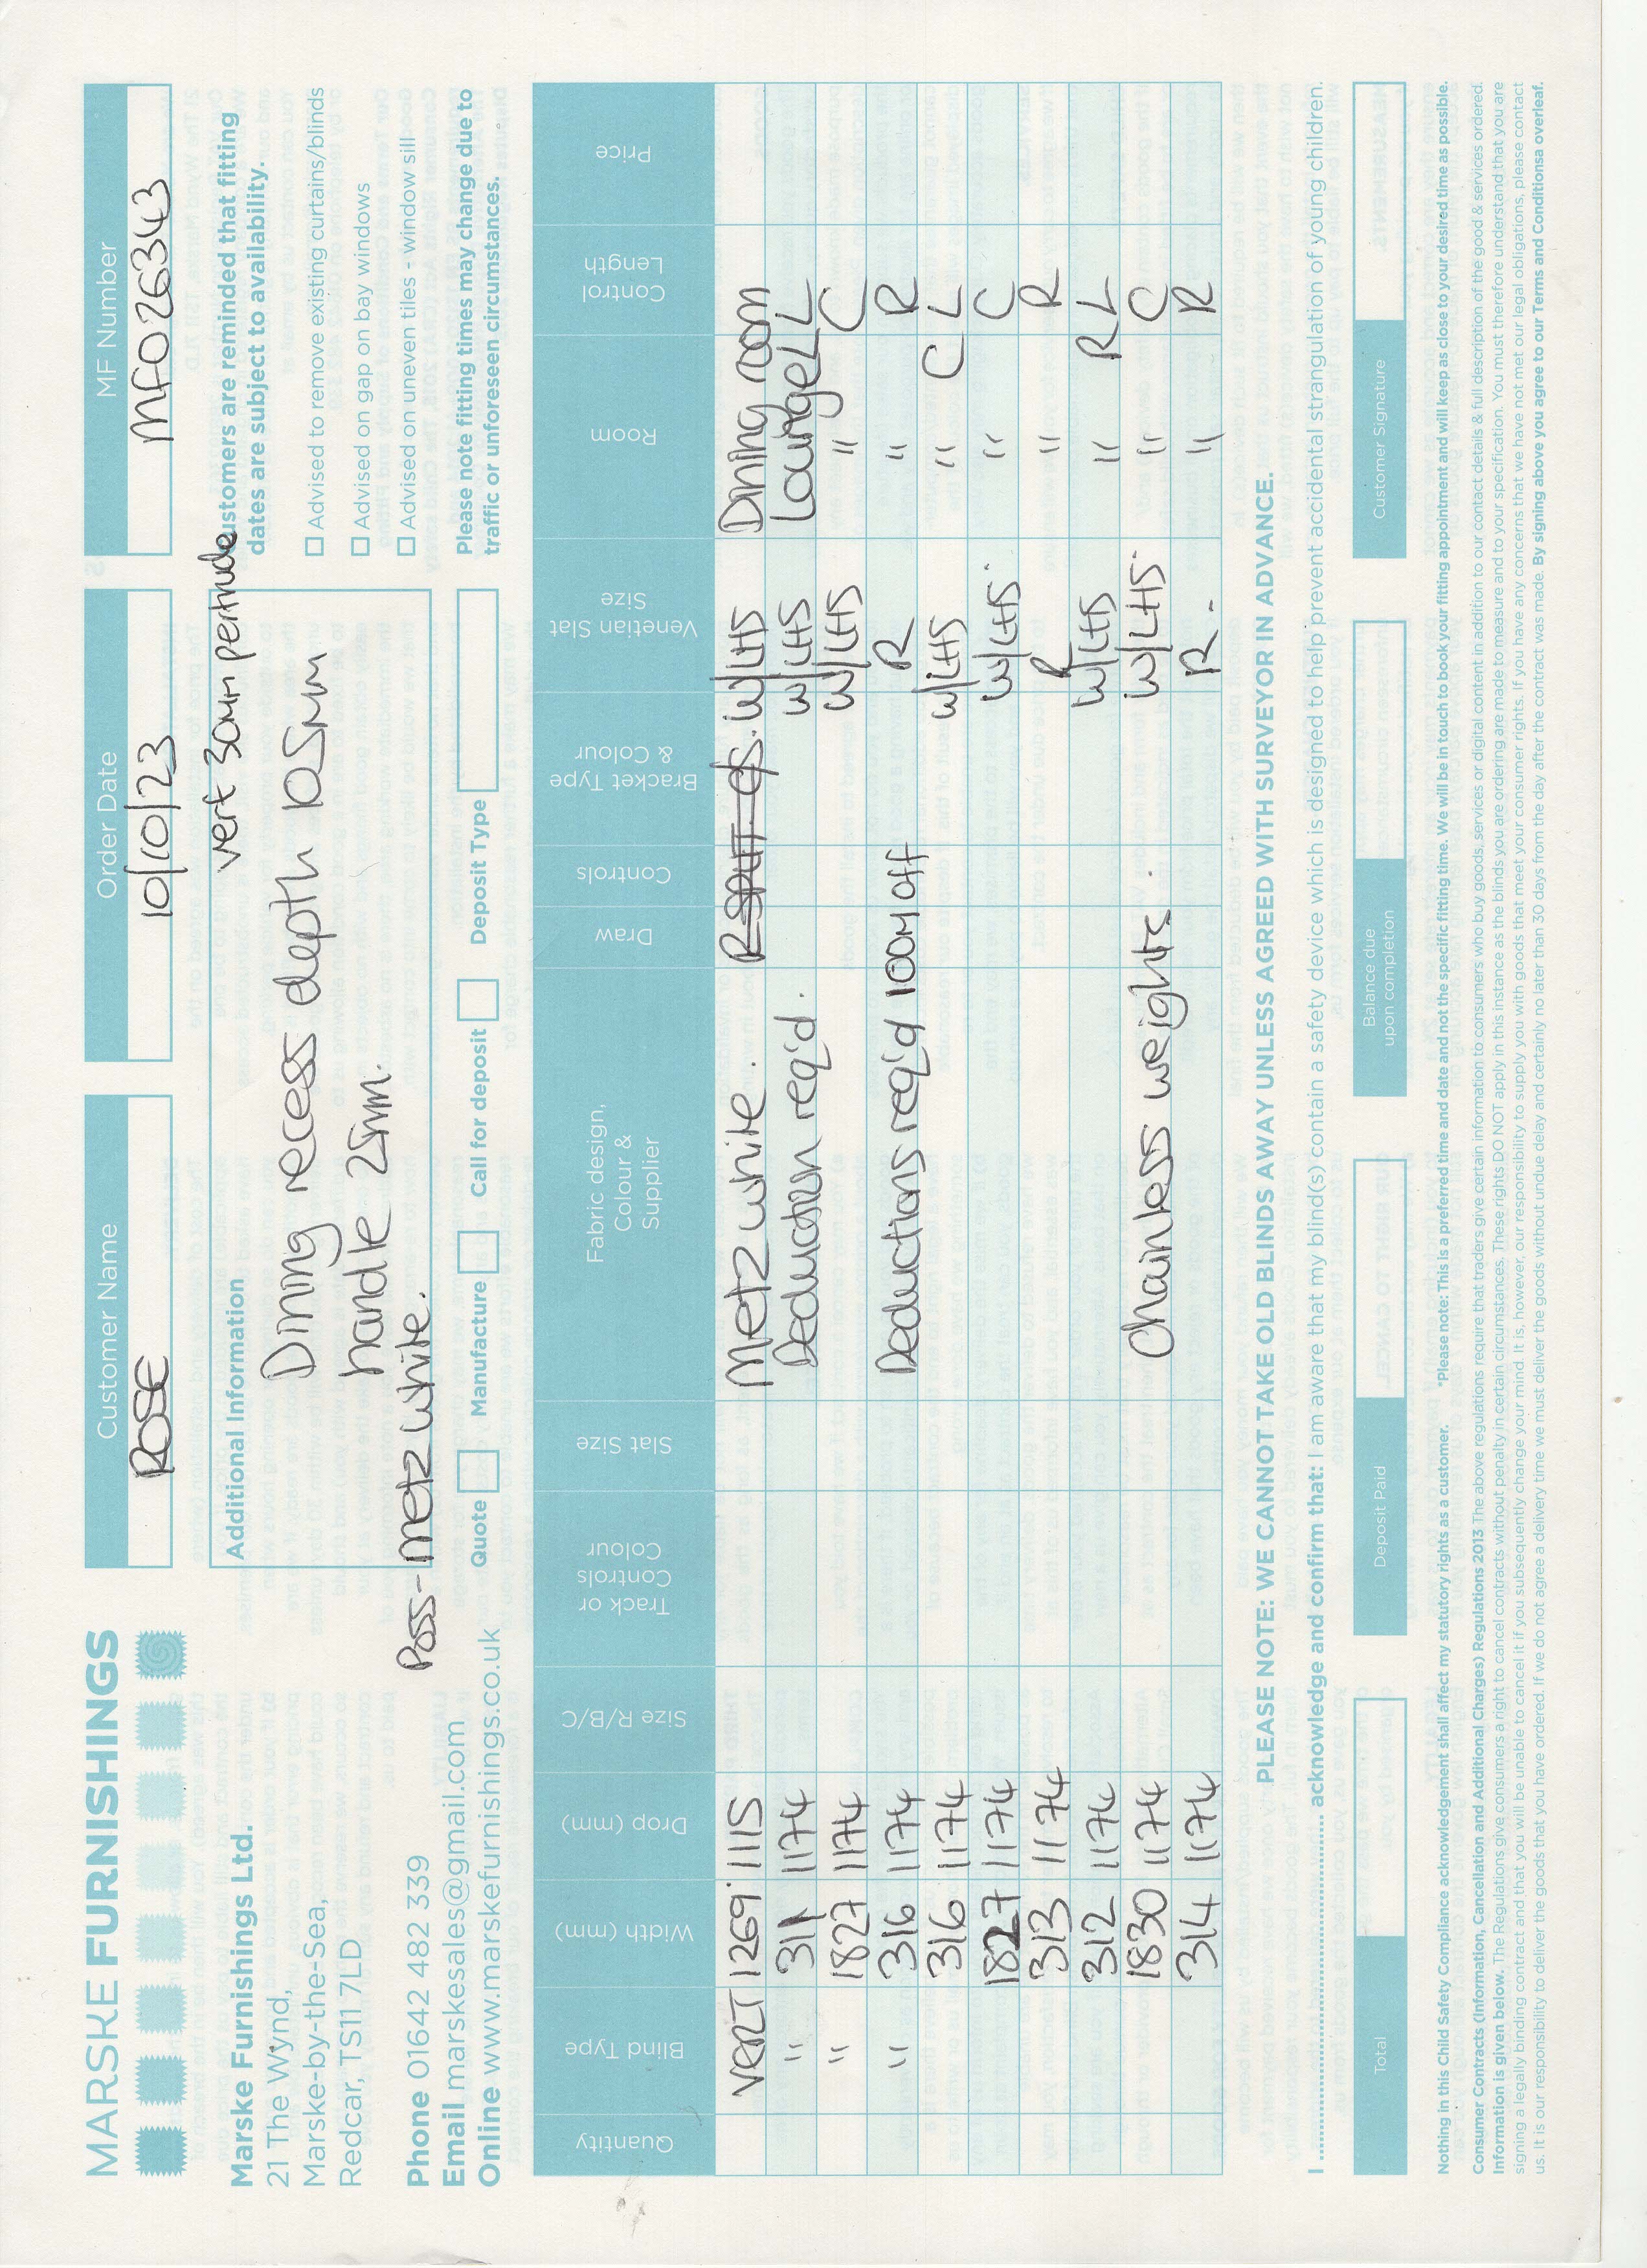 MARSKE FURNISHINGS
Marske Furnishings Ltd.
21 The Wynd,
Marske-by-the-Sea,
Redcar, TS11 7LD
Phone 01642 482 339
Email marskesales@gmail.com
Online www.marskefurnishings.co.uk
Customer Name
ROSE
Order Date
10/10/23
MF Number
MF026343
vert 30mm pertrude
Additional Information
Dining recess depth 105mm
handle 25mm.
Poss- metz white.
Customers are reminded that fitting
dates are subject to availability.
Advised to remove existing curtains/blinds
Advised on gap on bay windows
Advised on uneven tiles - window sill
Please note fitting times may change due to
traffic or unforeseen circumstances.
Quote Manufacture Call for deposit Deposit Type
Quantity Blind Type Width (mm) Drop (mm) Size R/B/C Track or Controls Colour Slat Size Fabric design, Colour & Supplier Draw Controls Bracket Type & Colour Venetian Slat Size Room Control Length Price
VERT 1269 1115 Metz white. R SPLIT C/S. W/LHS Dining room
" 311 1174 Deduction req'd. W/LHS Lounge L L
" 1827 1174 W/LHS " C
" 316 1174 Deductions req'd 100m off R " R
316 1174 W/LHS " C L
1827 1174 W/LHS. " C
313 1174 R " R
312 1174 W/LHS " R L
1830 1174 Chainless weights. W/LHS. " C
314 1174 R. " R
PLEASE NOTE: WE CANNOT TAKE OLD BLINDS AWAY UNLESS AGREED WITH SURVEYOR IN ADVANCE.
I ........................ acknowledge and confirm that: I am aware that my blind(s) contain a safety device which is designed to help prevent accidental strangulation of young children.
Total Deposit Paid Balance due upon completion Customer Signature
Nothing in this Child Safety Compliance acknowledgement shall affect my statutory rights as a customer. *Please note: This is a preferred time and date and not the specific fitting time. We will be in touch to book your fitting appointment and will keep as close to your desired time as possible.
Consumer Contracts (Information, Cancellation and Additional Charges) Regulations 2013 The above regulations require that traders give certain information to consumers who buy goods, services or digital content in addition to our contact details & full description of the good & services ordered.
Information is given below. The Regulations give consumers a right to cancel contracts without penalty in certain circumstances. These rights DO NOT apply in this instance as the blinds you are ordering are made to measure and to your specification. You must therefore understand that you are
signing a legally binding contract and that you will be unable to cancel it if you subsequently change your mind. It is, however, our responsibility to supply you with goods that meet your consumer rights. If you have any concerns that we have not met our legal obligations, please contact
us. It is our responsibility to deliver the goods that you have ordered. If we do not agree a delivery time we must deliver the goods without undue delay and certainly no later than 30 days from the day after the contract was made. By signing above you agree to our Terms and Conditionsa overleaf.